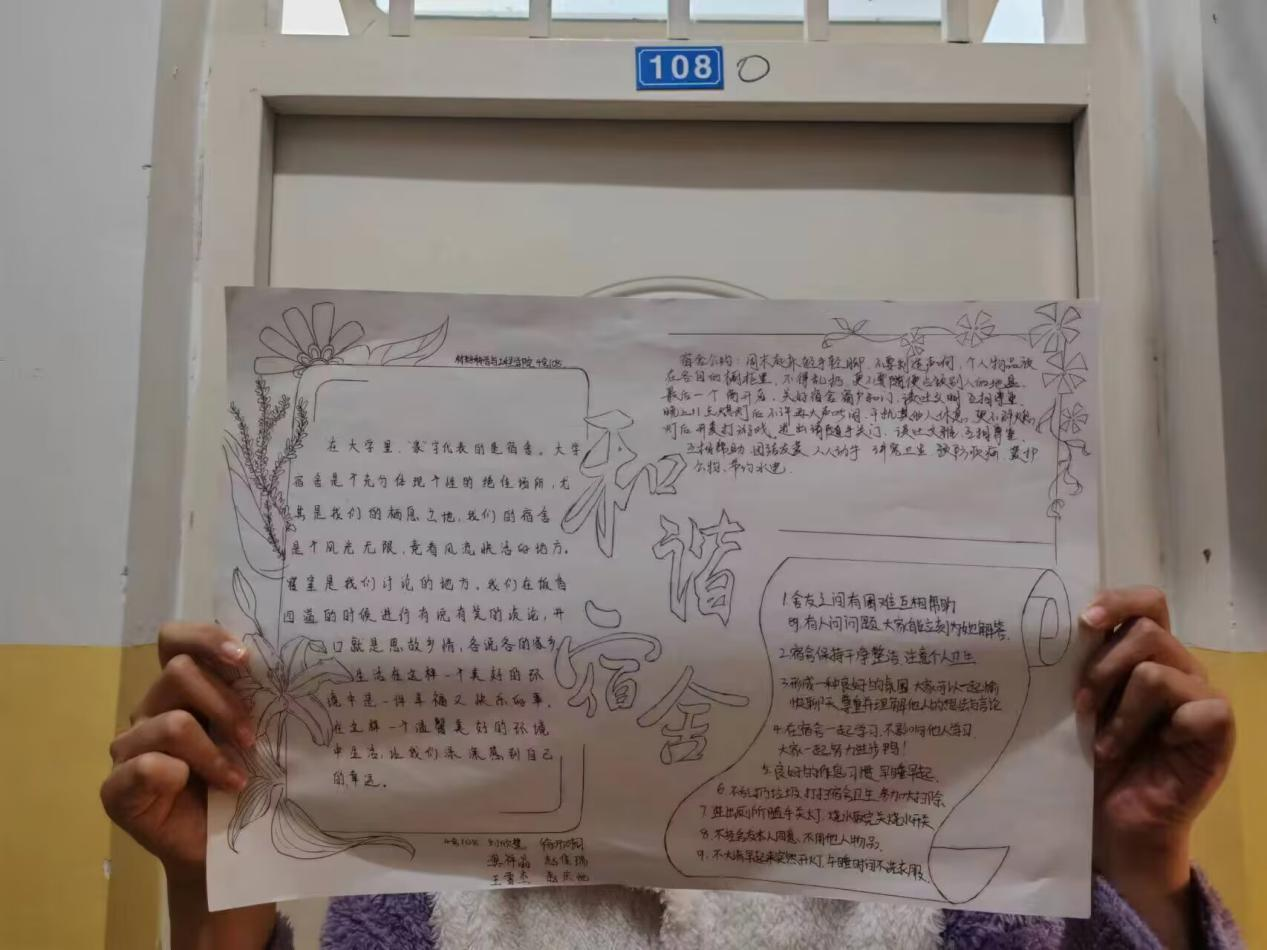 108
材料科学与工程学院 4舍108
在大学里，"家"字代表的是宿舍。大学
宿舍是个充分体现个性的绝佳场所，尤
其是我们的栖息之地，我们的宿舍
是个风光无限，竞看风流快活的地方。
寝室是我们讨论的地方。我们在饭香
四溢的时候进行有说有笑的谈论，开
口就是思故乡情，各说各的家乡
生活在这样一个美好的环
境中是一件幸福又快乐的事。
在这样一个温馨美好的环境
中生活，让我们深深感到自己
的幸运。
4舍108
和谐宿舍
宿舍公约：周末起床轻手轻脚，不要制造声响，个人物品放
在各自的橱柜里，不得乱扔，更不要随便占放别人的地盘。
最后一个离开者，关好宿舍窗户和门，谈吐文明 互相尊重
晚上11点熄灯后不许再大声吵闹，干扰其他人休息，更不许熄
灯后开麦打游戏，进出请随手关门，谈吐文雅，互相尊重
互相帮助 团结友爱 人人动手 讲究卫生 爱护
公物，节约水电。
1.舍友之间有困难互相帮助
有人问问题 大家能立刻为她解答。
2.宿舍保持干净整洁 注意个人卫生
3.形成一种良好的氛围 大家可以一起愉
快聊天 尊重并理解他人的想法与言论
4.在宿舍一起学习，不影响他人学习，
大家一起努力进步鸭！
5.良好的作息习惯 早睡早起。
6.不乱扔垃圾 打扫宿舍卫生 参加大扫除
7.进出厕所随手关灯，烧水做完关烧水开关
8.不经舍友本人同意，不用他人物品。
9.不大清早起来突然开灯，午睡时间不洗衣服。